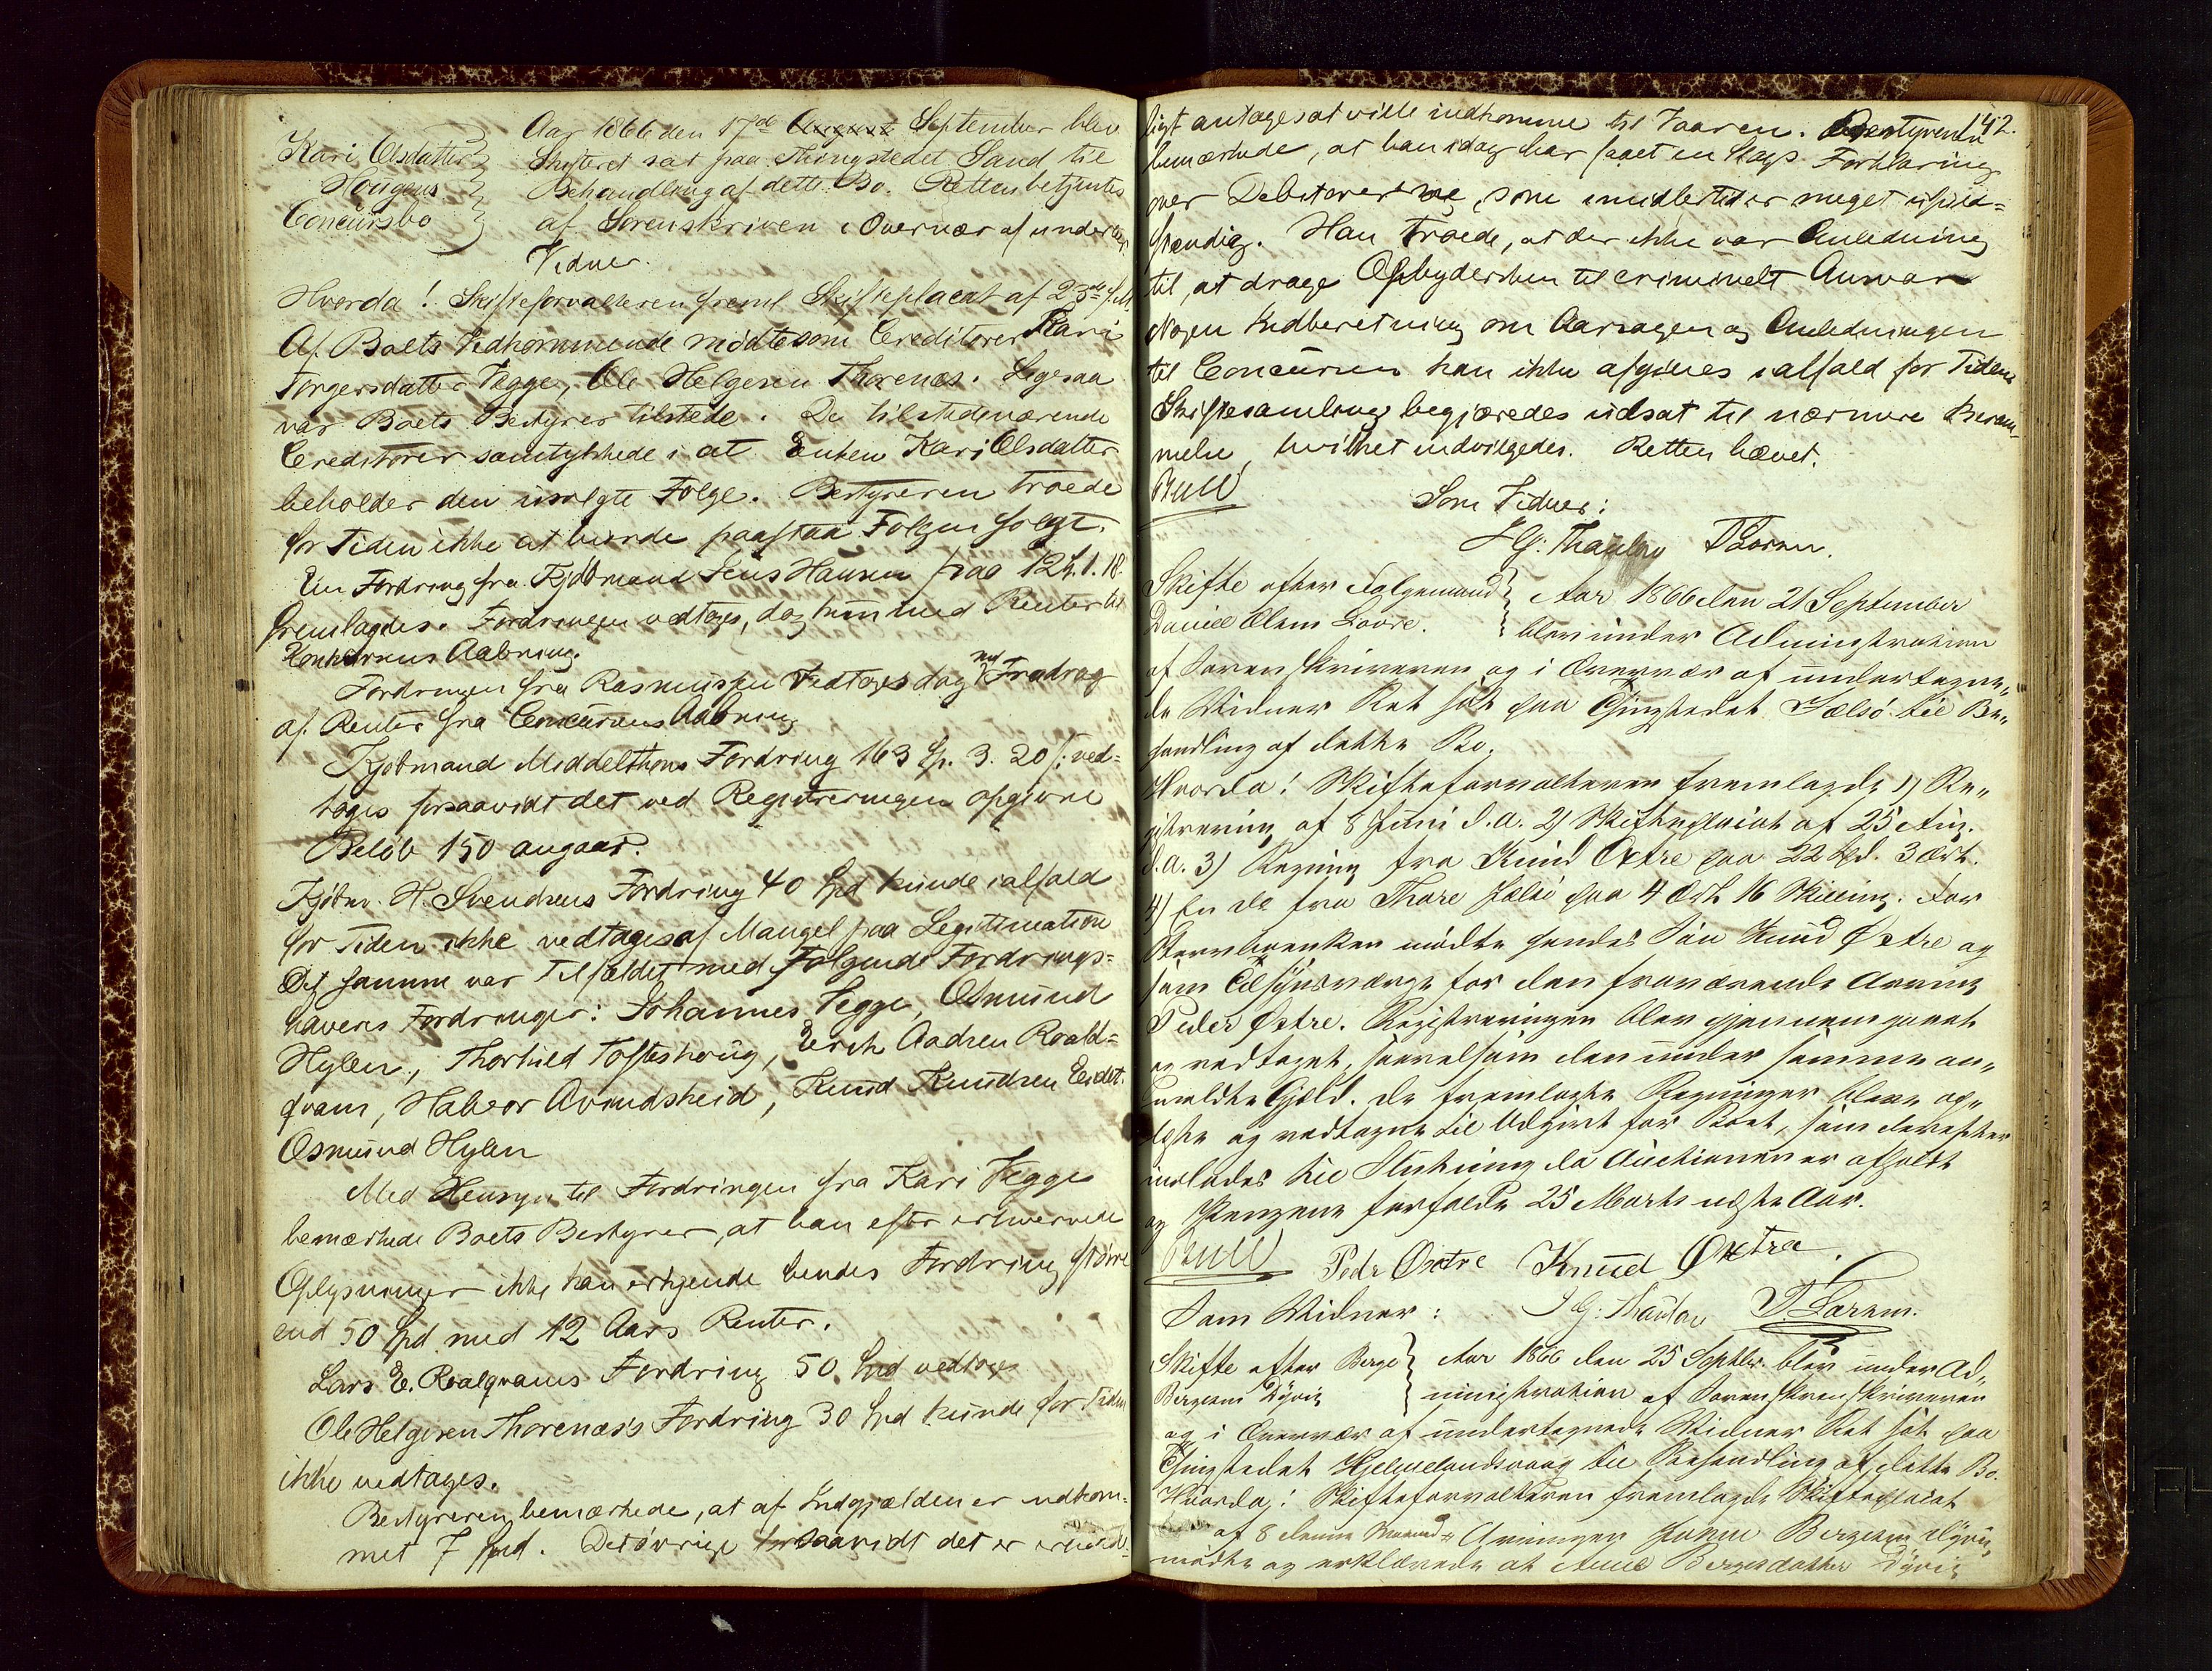 Kari Olsdatter
Hougens
Concursbo
Aar 1866 den 17de August September blev
Skifteret sat paa Thingstedet Sand til
Behandling af dette Bo. Retten betjentes
af Sorenskriven i Overvær af underteg.
Vidner.
Hvorda! Skifteforvalteren freml Skifteplacat af 23de f.M.
Af Boets Vedkommende mødte som Creditorer Kari
Torgersdatter Vegge, Ole Helgesen Thorenæs. Ligesaa
var Boets Bestyrer tilstede. De tilstedeværende
Creditorer samtykkede i at Enken Kari Olsdatter
beholder den usolgte Følge. Bestyreren troede
for Tiden ikke at burde paastaa Følgen solgt.
En Fordring fra Kjøbmand Jens Hansen paa 124.1.18.
fremlagdes. Fordringen vedtoges, dog kun med Renter til
Konkursens Aabning.
Fordringen fra Rasmussen Vedtoges dog med Fradrag
af Renter fra Concursens Aabning
Kjøbmand Middelthons Fordring 163 Sp. 3. 20 s. ved=
toges forsaavidt det ved Registreringen opgivne
Beløb 150 angaar.
Kjøbm. H. Svendsens Fordring 40 Spd kunde ialfald
for Tiden ikke vedtages af Mangel paa Legitimation
Det samme var Tilfældet med Følgende Fordrings=
haveres Fordringer: Johannes Vegge, Osmund
Hylen, Thorkild Tofteshoug, Erik Aadsen Roald=
qvam, Halvor Ormdsheid, Knud Knudsen Eidet.
Osmund Hylen
Med Hensyn til Fordringen fra Kari Vegge
bemærkede Boets Bestyrer, at han efter erhvervede
Oplysninger ikke kan erkjende hendes Fordring større
end 50 Spd med 12 Aars Renter.
Lars E. Roalqvams Fordring 50 Spd vedtoges
Ole Helgesen Thorenæs's Fordring 30 Spd kunde for Tiden
ikke vedtages.
Bestyreren bemærkede, at af Indgjælden er indkom=
met 7 Spd. Det øvrige forsaavidt det er erholde=
142.
ligt antages at ville indkomme til Vaaren. Bestyreren
bemærkede, at han idag har faaet en Slags Forklaring
over Debitorerne, som imidlertid er meget ufuld=
stændig. Han troede, at der ikke var Anledning
til, at drage Opbydersken til criminelt Ansvar
Nogen Indberetning om Aarsagen og Anledningen
til Concursen kan ikke afgives ialfald for Tiden.
Skiftesamling begjæredes udsat til nærmere Beram-
melse, hvilket indvilgedes. Retten hævet.
Bull
Som Vidner:
H G: Thaulow T Lorem.
Skifte efter Følgemand
Daniel Olsen Lovre.
Aar 1866 den 21 September
blev under Administration
af Sorenskriveren og i Overvær af undertegne„
de Vidner Ret sat paa Thingstedet Jelsø til Be„
handling af dette Bo.
Hvorda! Skifteforvalteren fremlagde 1) Re„
gistrering af 8 Juni d.a. 2) Skifteplacat af 25 Aug.
d.a. 3) Regning fra Knud Øxtre paa 22 Spd. 3 Ort.
4) En do fra Thore Jelsø paa 4 Ort 16 Skilling. For
Stervboenken mødte hendes Søn Knud Øxtre og
som Tilsynsværge for den fraværende Arving
Peder Øxtre. Registreringen blev gjennemgaaet
og vedtaget, saavelsom den under samme an„
meldte Gjæld. De fremlagte Regninger bleve op„
læste og vedtagne til Udgivt for Boet, som derefter
indlades til Slutning da Auctionen er afholdt
og Pengene forfalde 25 Marts næste Aar.
Bull Peder Øxtre Knud Øxtra.
Som Vidner: H G: Thaulow T. Lorem.
Skifte efter Berge
Bergesen Djuvig
Aar 1866 den 25 Septbr. blev under Ad„
ministration af Sorenskrenskriveren
og i Overvær af undertegnede Vidner Ret sat paa
Thingstedet Hjelmelandsvaag til Behandling af dette Bo.
Hvorda! Skifteforvalteren fremlagde Skifteplacat
af 8 denne Maaned= Arvingen Berge Bergesen Djuvig
mødte og erklærede at Anne Bergesdatter Djuvig